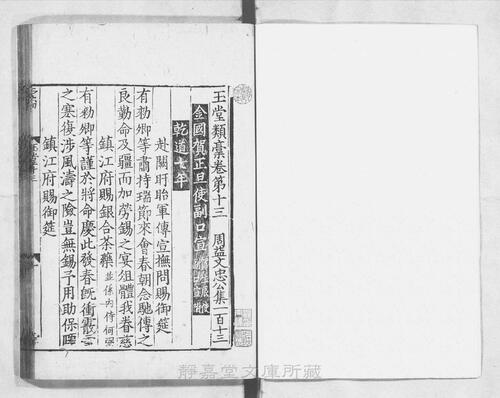 玉堂類藁卷第十三　周益文忠公集一百十三
金國賀正旦使副口宣
乾道七年
赴闕盱眙軍傳宣撫問賜御筵
有勑卿等肅持瑞節來會春朝念馳傳之
良勤命及疆而加勞錫之宴俎體我眷慈
鎮江府賜銀合茶藥
有勑卿等謹於將命慶此發春旣衝霰雪
之寒復涉風濤之險豈無錫予用助保
鎮江府賜御筵
靜嘉堂文庫所藏